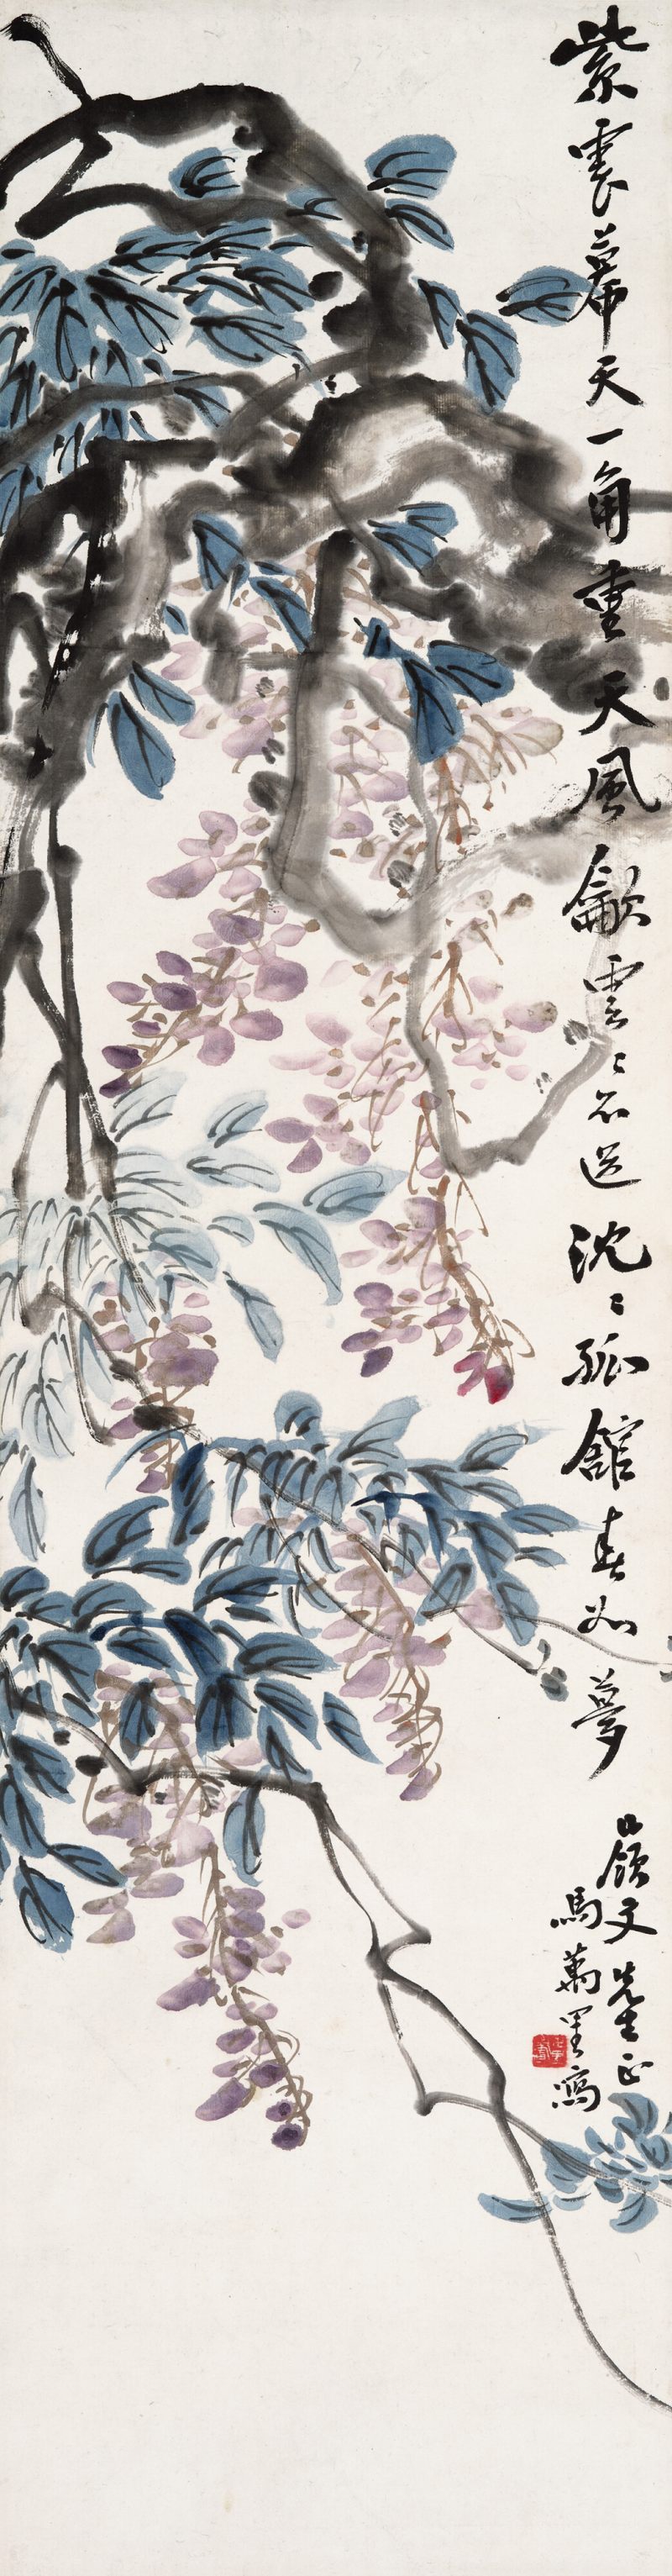 紫雲幕天一角重天風龡雲〻不送沈〻孤館春如夢
嶺文先生正
馬萬里寫